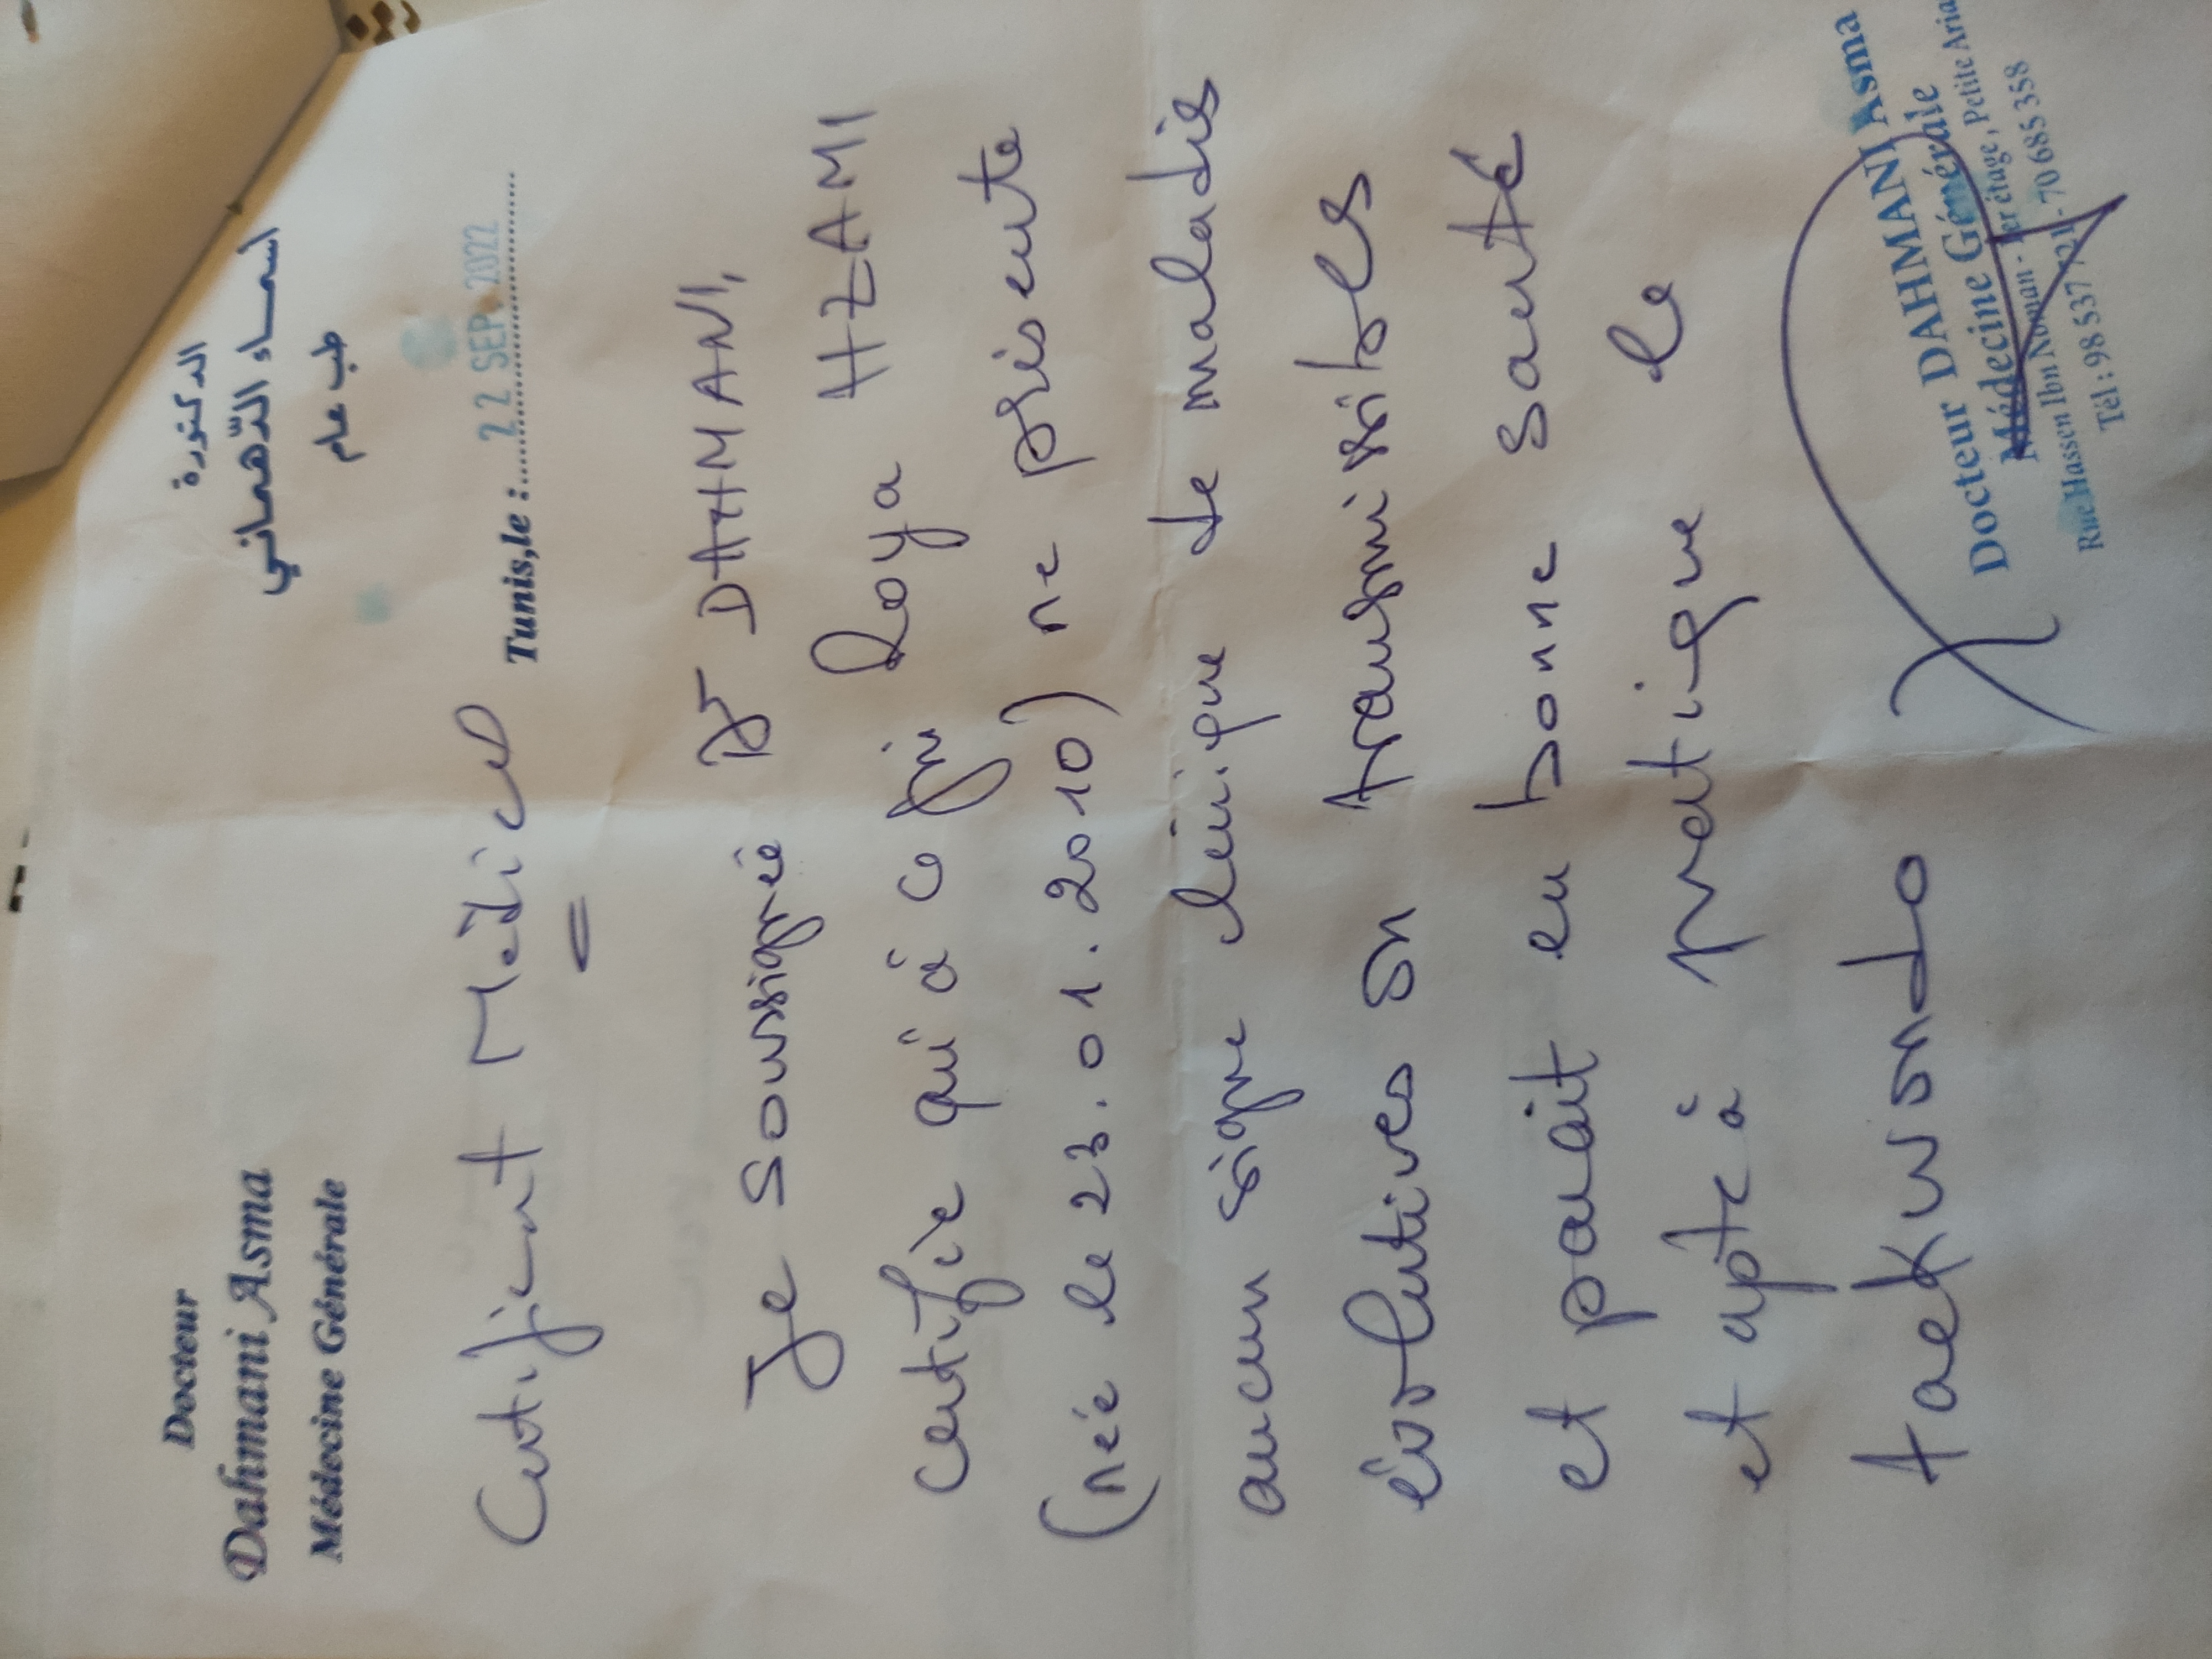 Docteur
Dahmani Asma
Médecine Générale
الدكتورة
أسماء الدّهماني
طب عام
Tunis,le : 22 SEP. 2022
Certificat Médical
Je soussignée Dr DAHMANI,
certifie qu'à ce jour Roya HZAMI
(née le 23.01.2010) ne présente
aucun signe clinique de maladies
évolutives ou transmissibles
et parait en bonne santé
et apte à pratique le
taekwondo
Docteur DAHMANI Asma
Médecine Générale
Rue Hassen Ibn Nooman - 1er étage, Petite Aria
Tél : 98 537 721 - 70 685 358